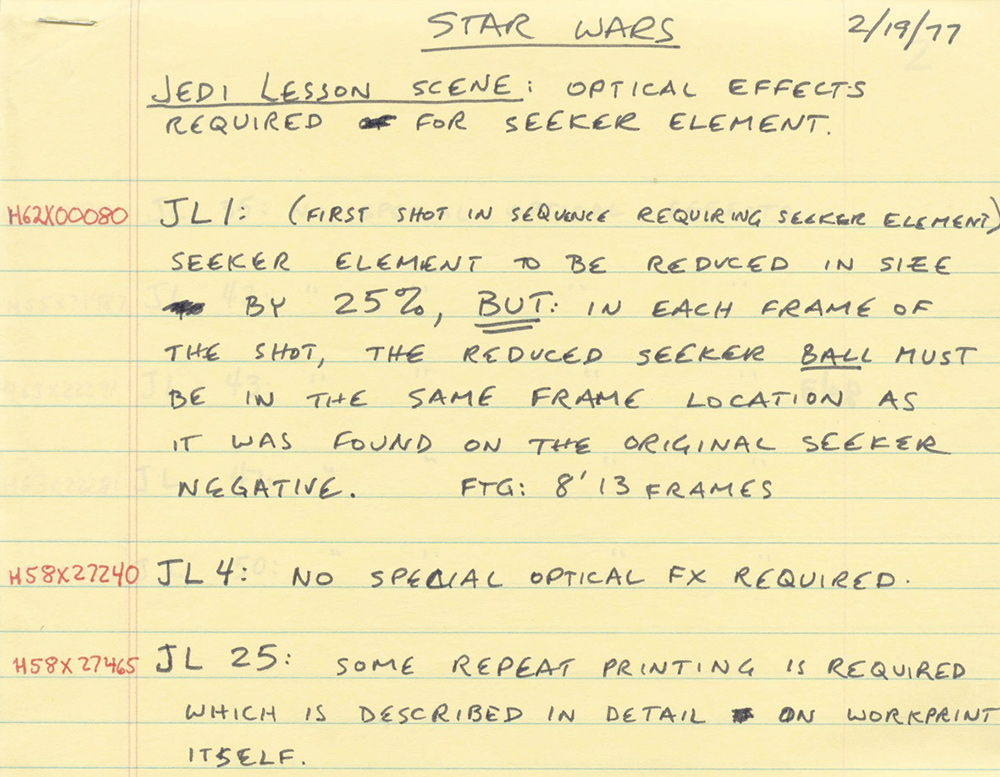 STAR WARS 2/19/77
JEDI LESSON SCENE: OPTICAL EFFECTS
REQUIRED FOR SEEKER ELEMENT.
H62X00080 JL 1: (FIRST SHOT IN SEQUENCE REQUIRING SEEKER ELEMENT)
SEEKER ELEMENT TO BE REDUCED IN SIZE
BY 25%, BUT: IN EACH FRAME OF
THE SHOT, THE REDUCED SEEKER BALL MUST
BE IN THE SAME FRAME LOCATION AS
IT WAS FOUND ON THE ORIGINAL SEEKER
NEGATIVE. FTG: 8' 13 FRAMES
H58X27240 JL 4: NO SPECIAL OPTICAL FX REQUIRED.
H58X27465 JL 25: SOME REPEAT PRINTING IS REQUIRED
WHICH IS DESCRIBED IN DETAIL ON WORKPRINT
ITSELF.